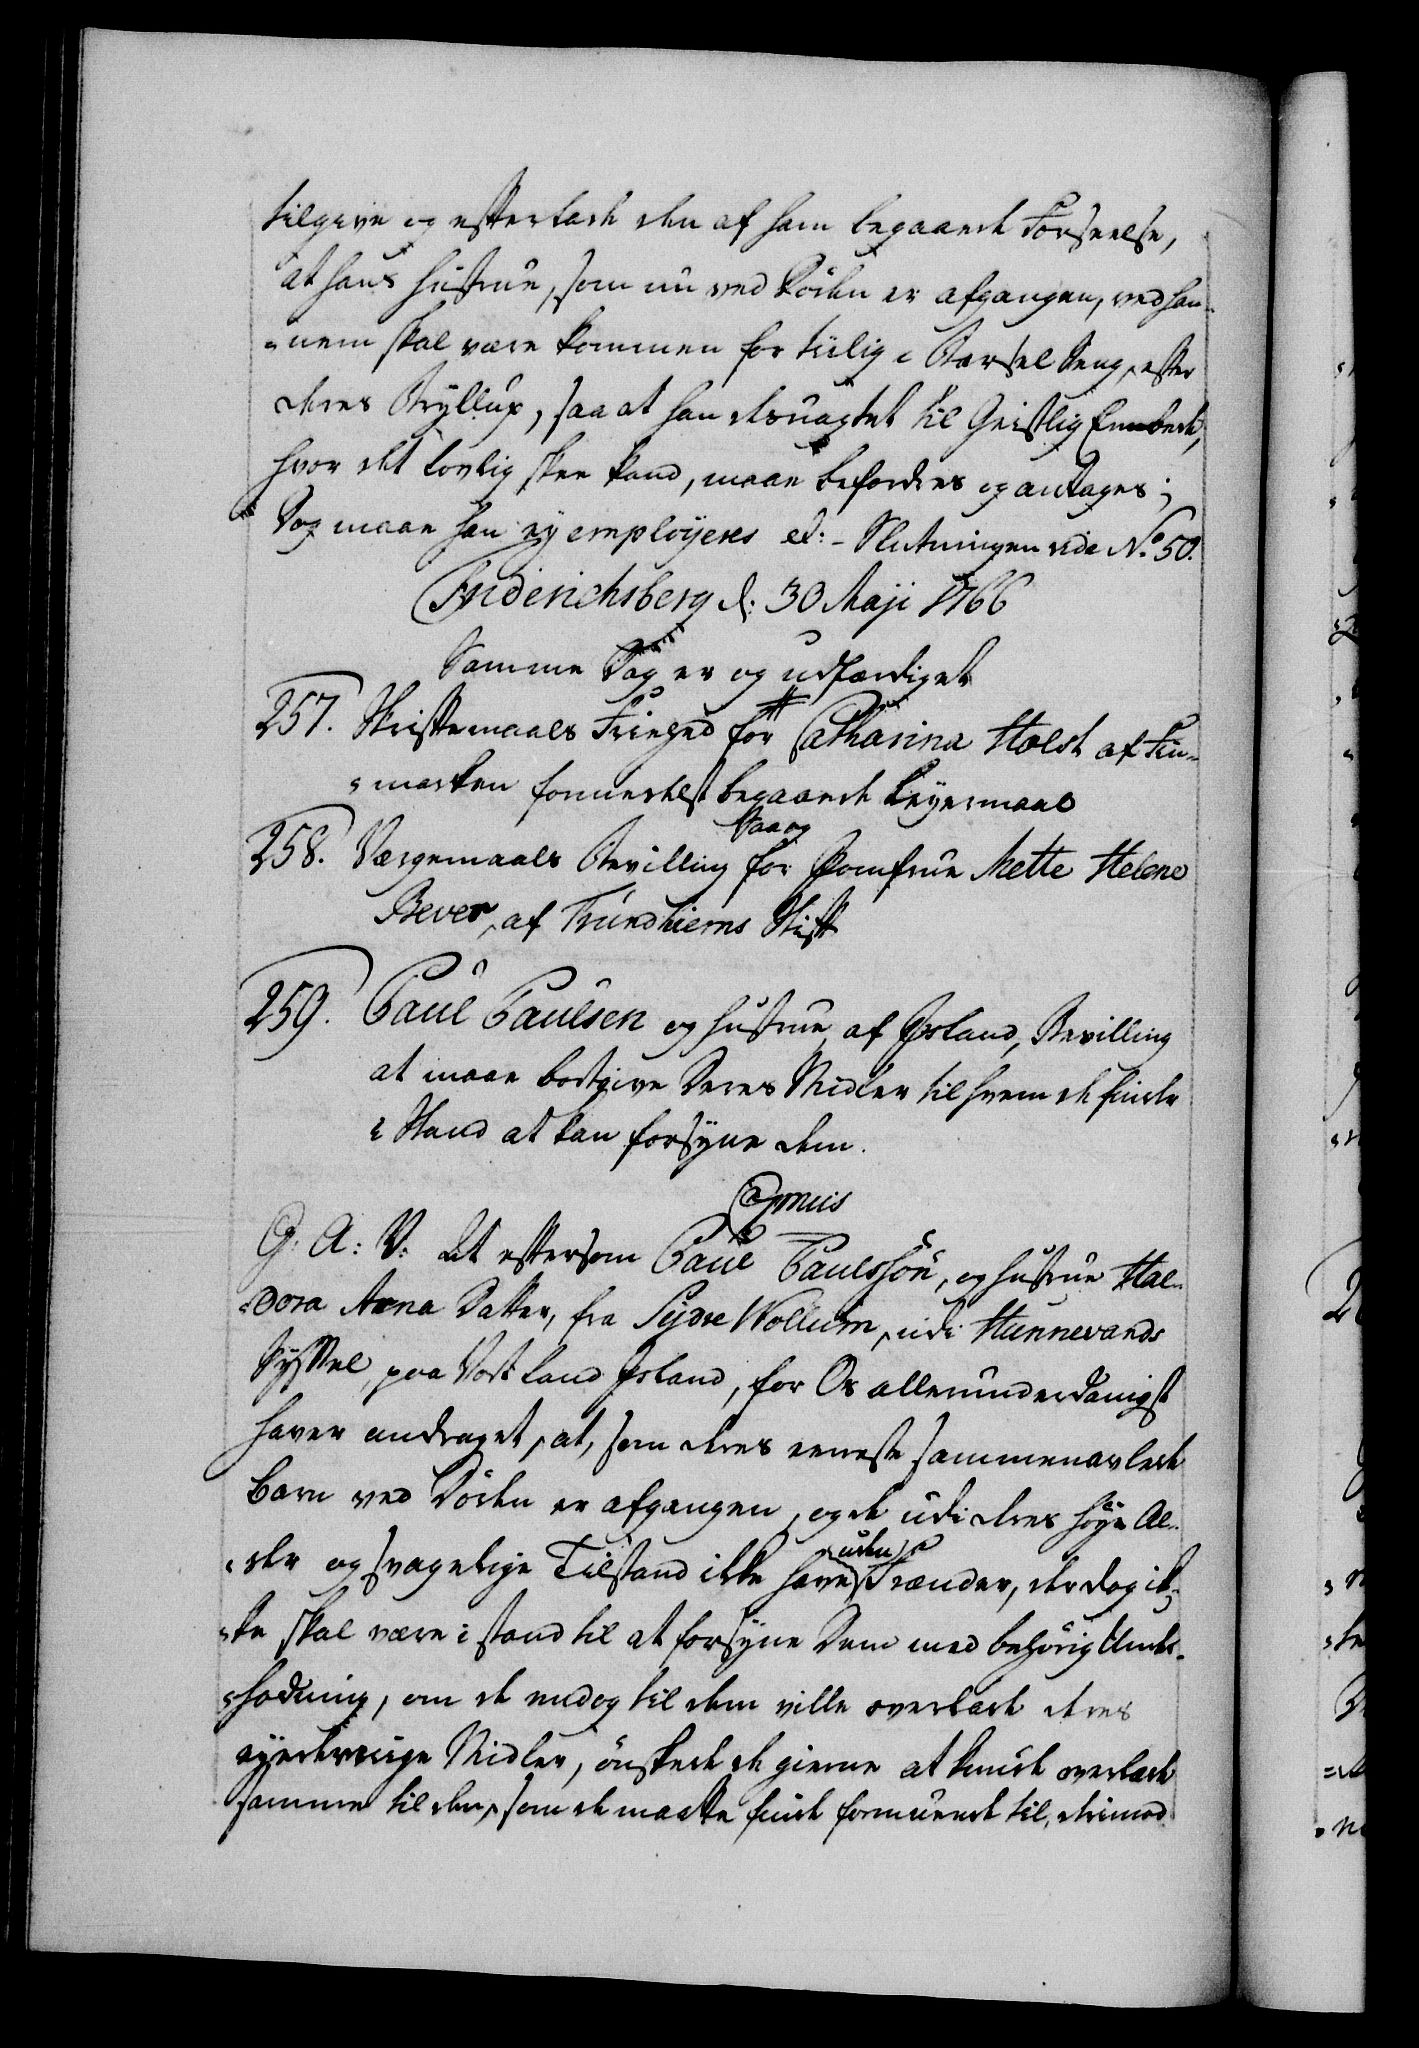 tilgive og efterlade den af ham begaaede Forseelse,
at hans hustrue, som nu ved Döden er afgangen, ved han-
nem skal være kommen for tiilig i Barsel Seng, efter
deres Bryllup, saa at han desuagtet til Geistlig Embede,
hvor det lovlig skee kand, maae befordres og antages;
Dog maae han ey employeres etc: - Slutningen vide No. 50.
Friderichsberg d: 30 Maji 1766
Samme Dag er og udfærdiget
257. Skriftemaals Friehed for Catharina Holst af Fin-
marken formedelst begaaede Leyermaal
258. Værgemaals Bevilling Saa og for Jomfrue Mette Helene
Bever, af Trundhiems Stift
259. Paul Paulsen og hustrue, af Island, Bevilling
at maae bortgive Deres Midler til hvem de finde
i Stand at kan forsyne dem.
Gratis
G: A: V: At eftersom Paul Paulssön, og hustrue Hal-
dora Arna Datter, fra Sydre Wollum, udi Hunnevands
Syssel, paa Vort Land Island, for Os allerunderdanigst
haver andraget, at, som deres eeneste sammenavlede
Barn ved Döden er afgangen, og de udi deres höye Al-
der og svagelige Tilstand ikke have uden Frænder, der dog ik-
ke skal være i stand til at forsyne Dem med behörig Under-
holdning, om de endog til dem ville overlade deres
eyendeeige Midler, önskede de gierne at kunde overlade
samme til den, som de maatte finde formuende til, derimod